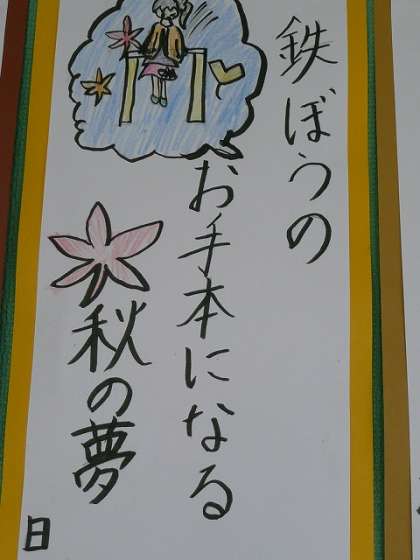 鉄ぼうの
お手本になる
秋の夢
日